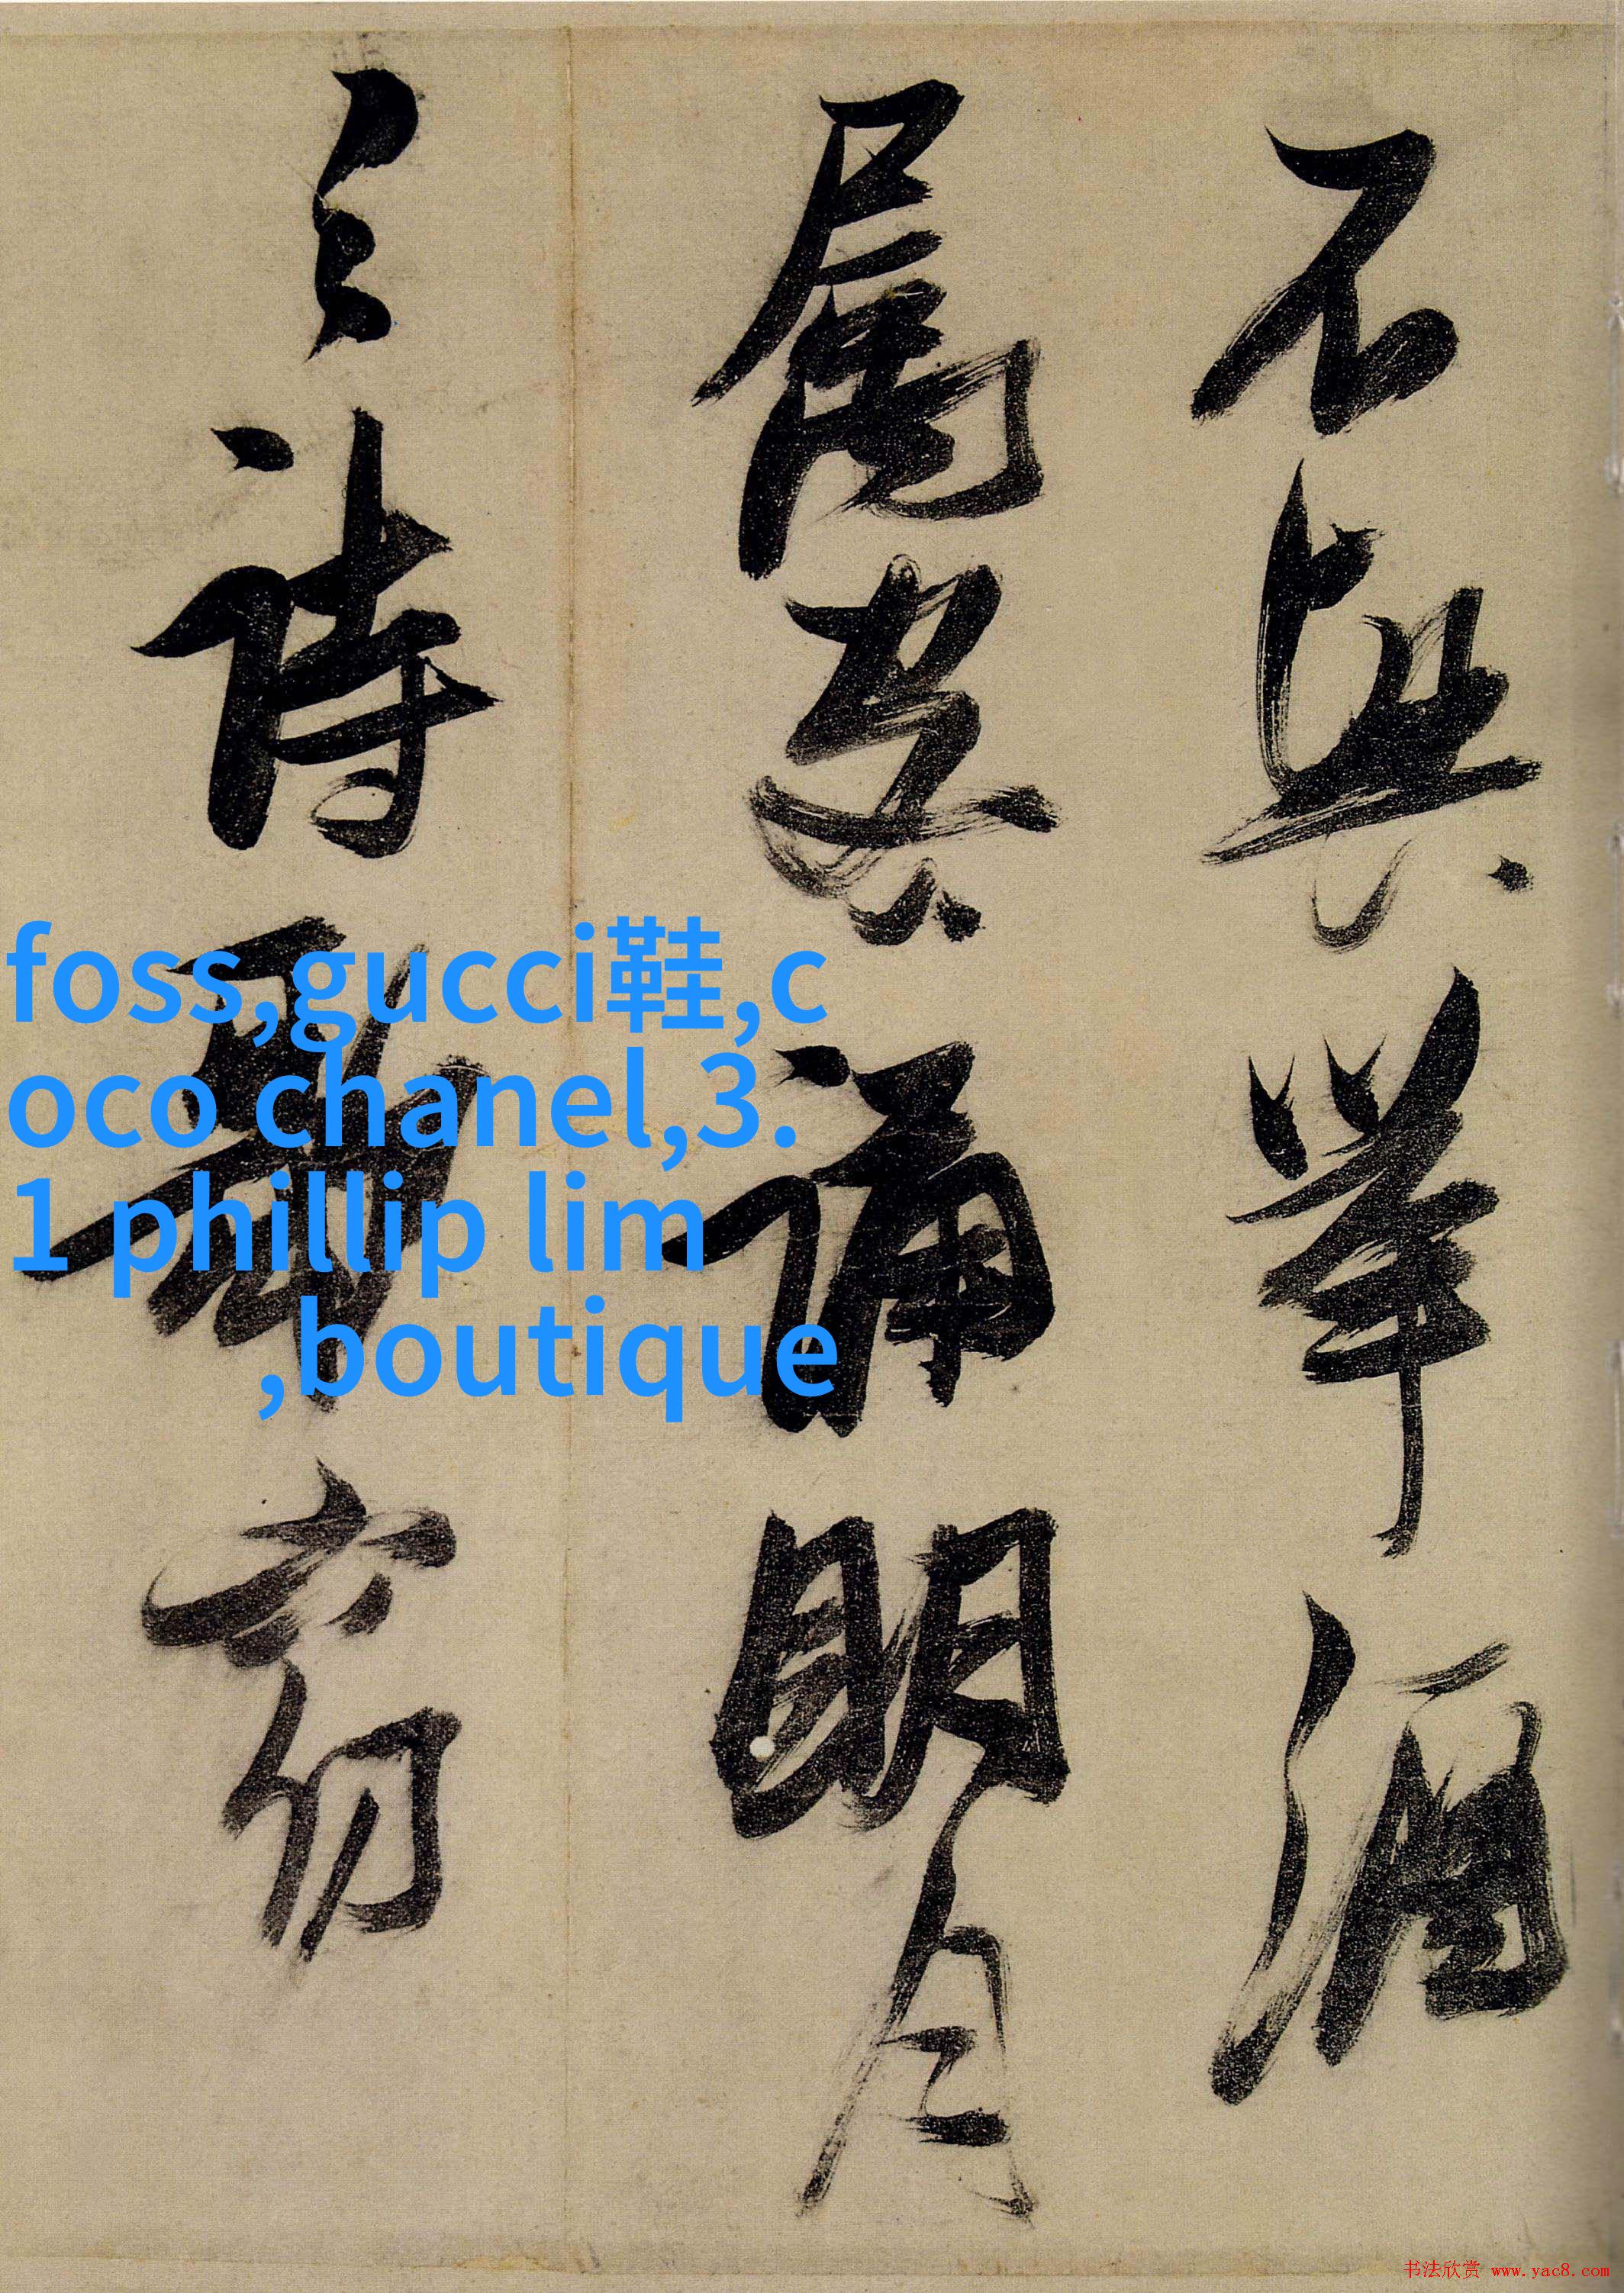 不興舉酒
屬客誦明月
之詩歌窈
foss,gucci鞋,c
oco chanel,3.
1 phillip lim
,boutique
书法欣赏 www.yac8.com